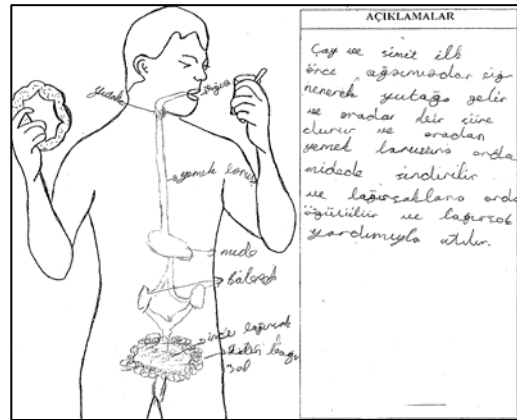 AÇIKLAMALAR
Çay ve simit ilk
önce ağzımızdan çiğ
nenerek yutağa gelir
ve oradan bir süre
durur ve oradan
yemek borusuna orda
midede sindirilir
ve bağırsaklara orda
öğütülür ve bağırsak
yardımıyla atılır.
yutak
ağız
yemek borusu
mide
böbrek
ince bağırsak